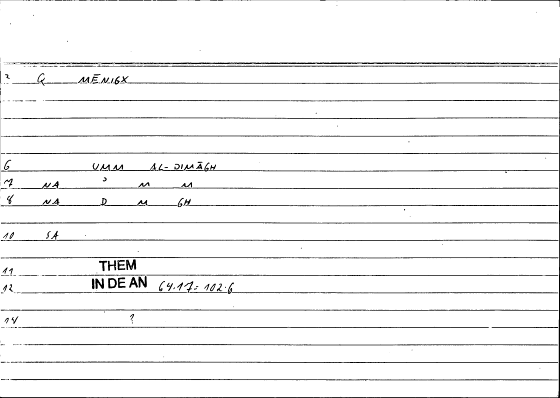 2 Q MĒNIGX
6 UMM AL-DIMĀGH
7 NA ' M M
8 NA D M GH
10 SA
11 THEM
12 IN DE AN 64.17 = 102.6
14 ?